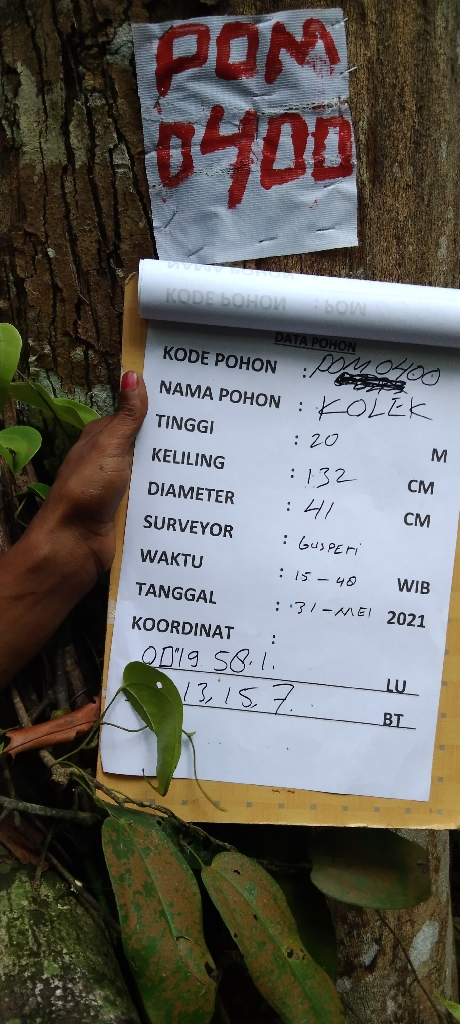 POM
0400
KODE POHON : POM
DATA POHON
KODE POHON : POM 0400
NAMA POHON : KOLEK
TINGGI : 20 M
KELILING : 132 CM
DIAMETER : 41 CM
SURVEYOR : GUSPERI
WAKTU : 15-40 WIB
TANGGAL : 31-MEI 2021
KOORDINAT :
0019 58.1. LU
13, 15, 7. BT